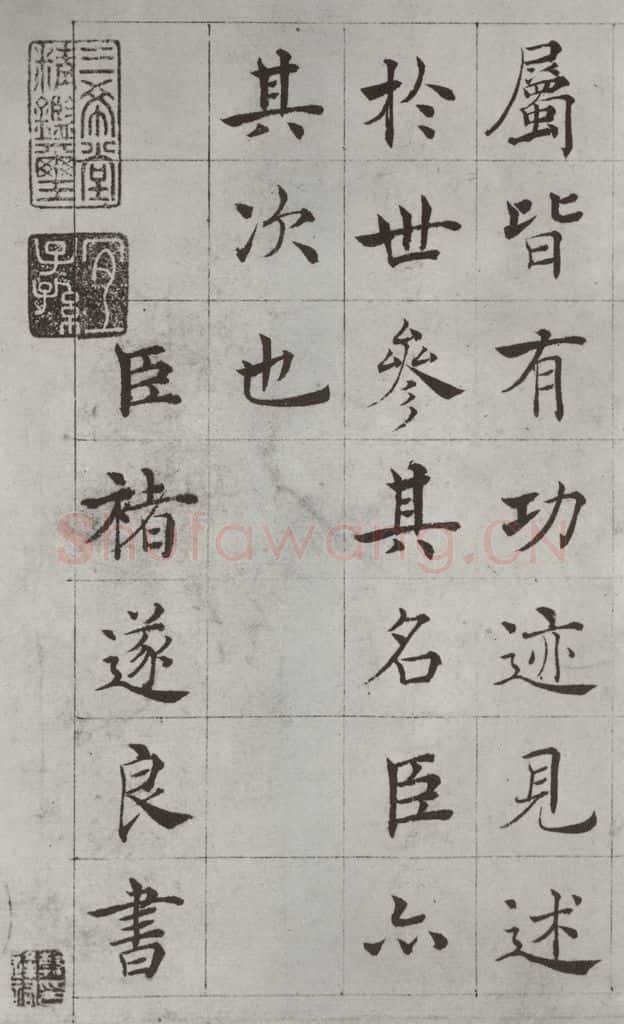 屬皆有功迹見述
於世參其名臣亦
其次也
臣褚遂良書
三希堂精鑑璽
宜子孫
Shufawang.CN